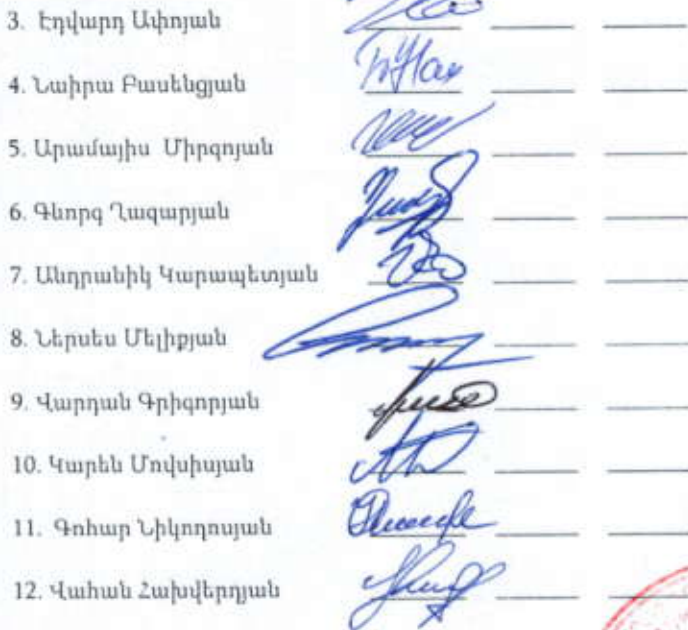 3. Էդվարդ Ափոյան
4. Նաիրա Բասենցյան
5. Արամայիս Միրզոյան
6. Գևորգ Ղազարյան
7. Անդրանիկ Կարապետյան
8. Ներսես Մելիքյան
9. Վարդան Գրիգորյան
10. Կարեն Մովսիսյան
11. Գոհար Նիկողոսյան
12. Վահան Հախվերդյան